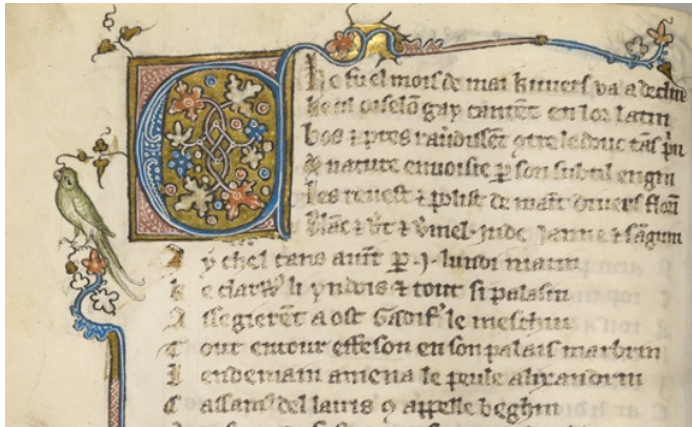 Che fu el mois de mai kiuuers va a declin
ke cil oiselō gay cantēt en lor latin
bos ⁊ pres rauerdissēt ꝯtre le douc tās
⁊ nature enuoisie ꝑ son subtil engin
les reuest ⁊ polist de maīt diuers
Blāc ⁊ v̾t ⁊ v̾mel . jnde janne ⁊ sāguin
A ychel tans auīt ꝑ .j. lundi matin
k e clarꝰ li yndois ⁊ tout si palasin
A ssegierēt a ost Gadif᾽ le meschin
T out entour effeson en son palais marbrin
L endemain amena le peule alixandrin
C assamꝰ del lairis ꝯ appelle beghin